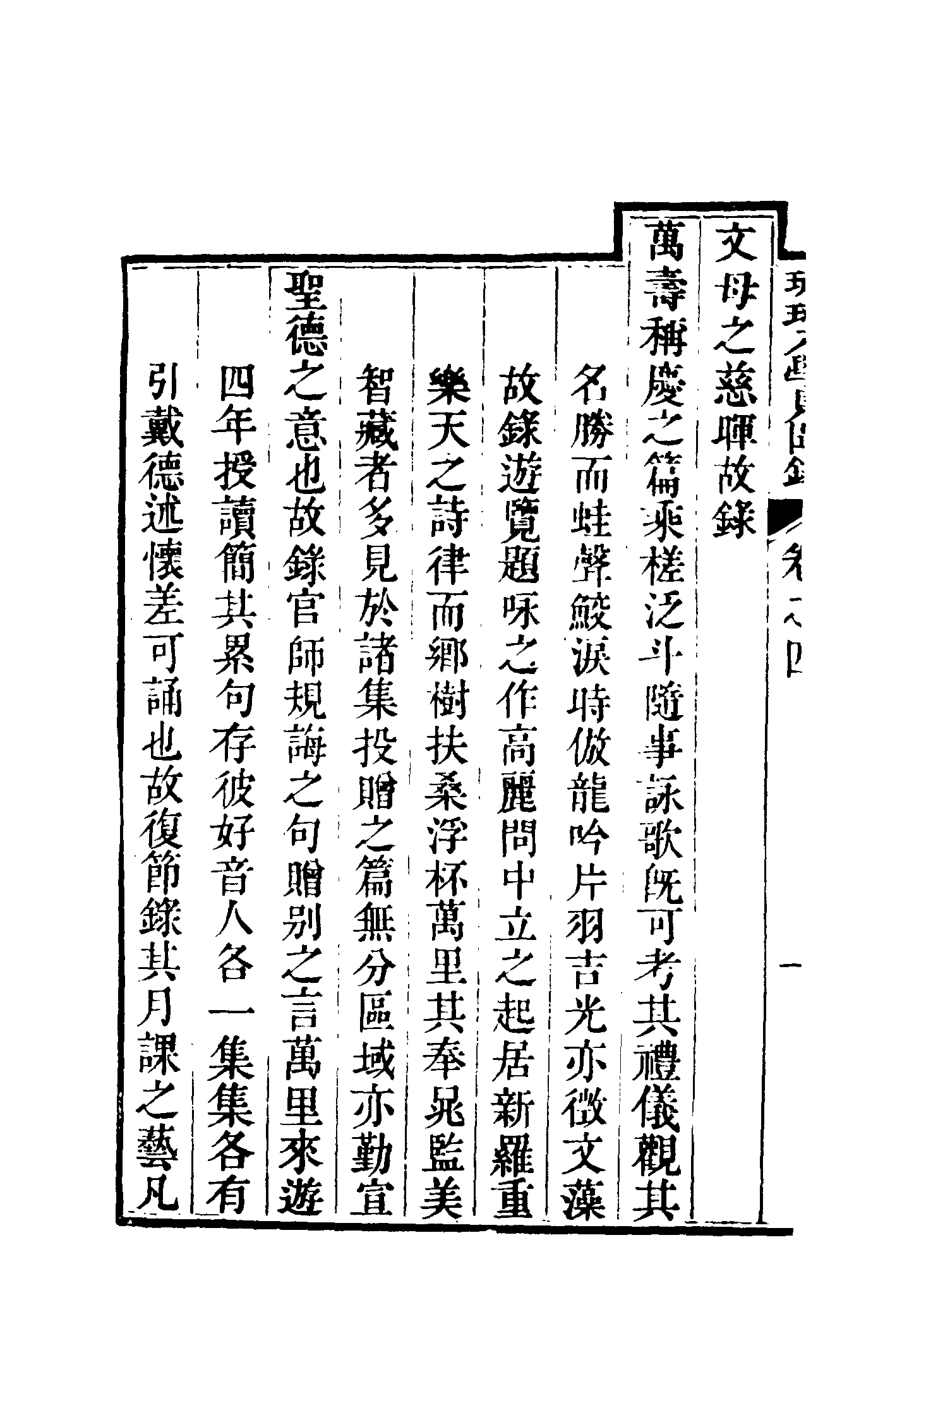 文母之慈暉故錄
萬壽稱慶之篇乘槎泛斗隨事詠歌旣可考其禮儀觀其
名勝而蛙聲鮫淚時倣龍吟片羽吉光亦徴文藻
故錄遊覽題咏之作高麗問中立之起居新羅重
樂天之詩律而鄉樹扶桑浮杯萬里其奉晁監美
智藏者多見於諸集投贈之篇無分區域亦勤宣
聖德之意也故錄官師規誨之句贈别之言萬里來遊
四年授讀簡其累句存彼好音人各一集集各有
引戴德述懷差可誦也故復節錄其月課之藝凡